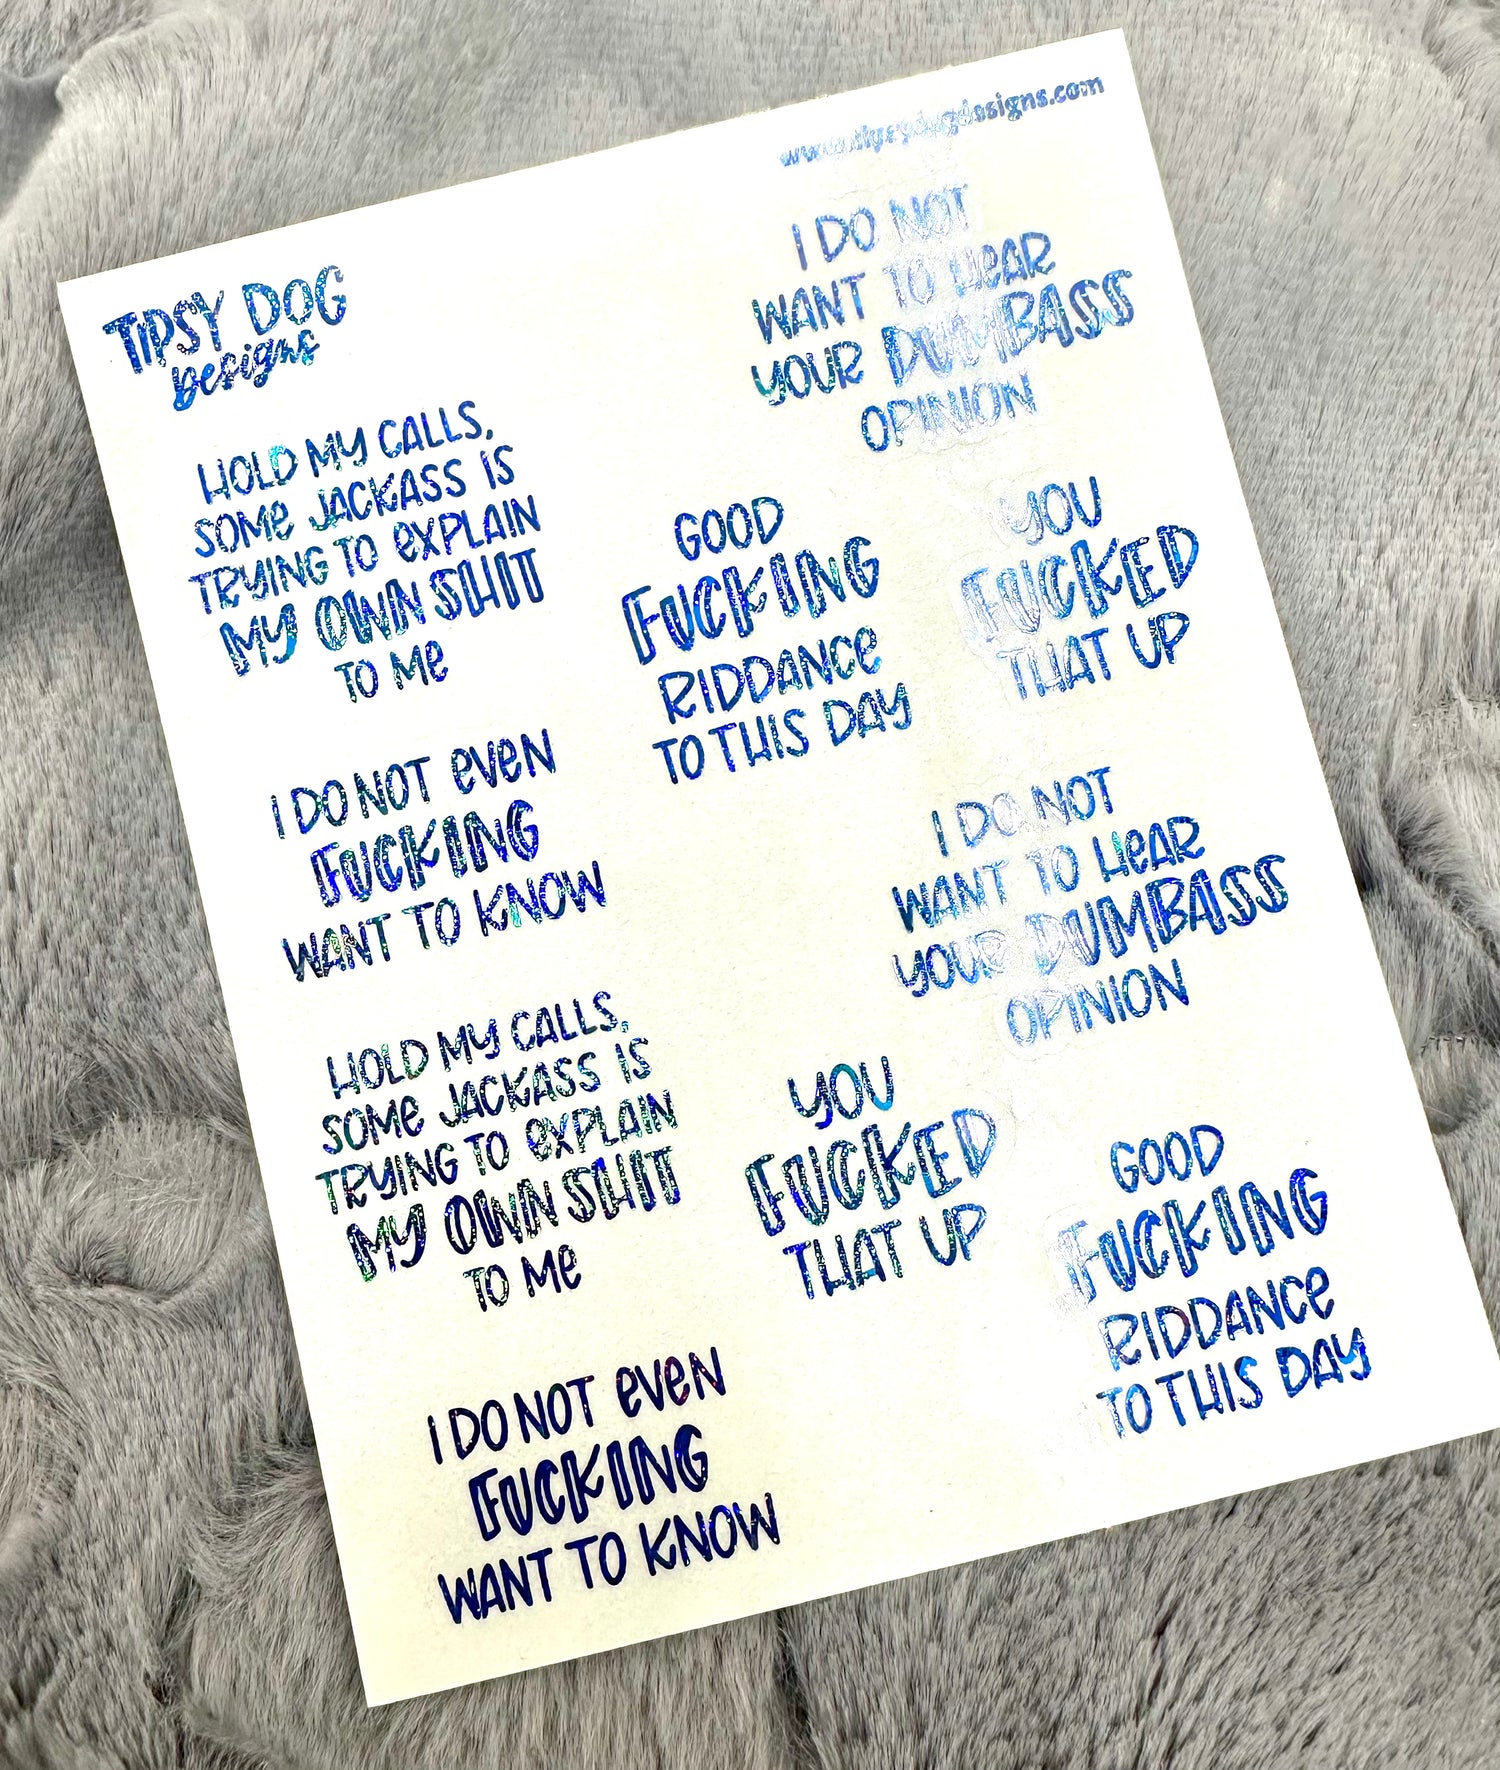 www.tipsydogdesigns.com
TIPSY DOG
Designs
HOLD MY CALLS,
SOME JACKASS IS
TRYING TO EXPLAIN
MY OWN SHIT
TO ME
I DO NOT
WANT TO HEAR
YOUR DUMBASS
OPINION
GOOD
FUCKING
RIDDANCE
TO THIS DAY
YOU
FUCKED
THAT UP
I DO NOT EVEN
FUCKING
WANT TO KNOW
I DO NOT
WANT TO HEAR
YOUR DUMBASS
OPINION
HOLD MY CALLS,
SOME JACKASS IS
TRYING TO EXPLAIN
MY OWN SHIT
TO ME
YOU
FUCKED
THAT UP
GOOD
FUCKING
RIDDANCE
TO THIS DAY
I DO NOT EVEN
FUCKING
WANT TO KNOW